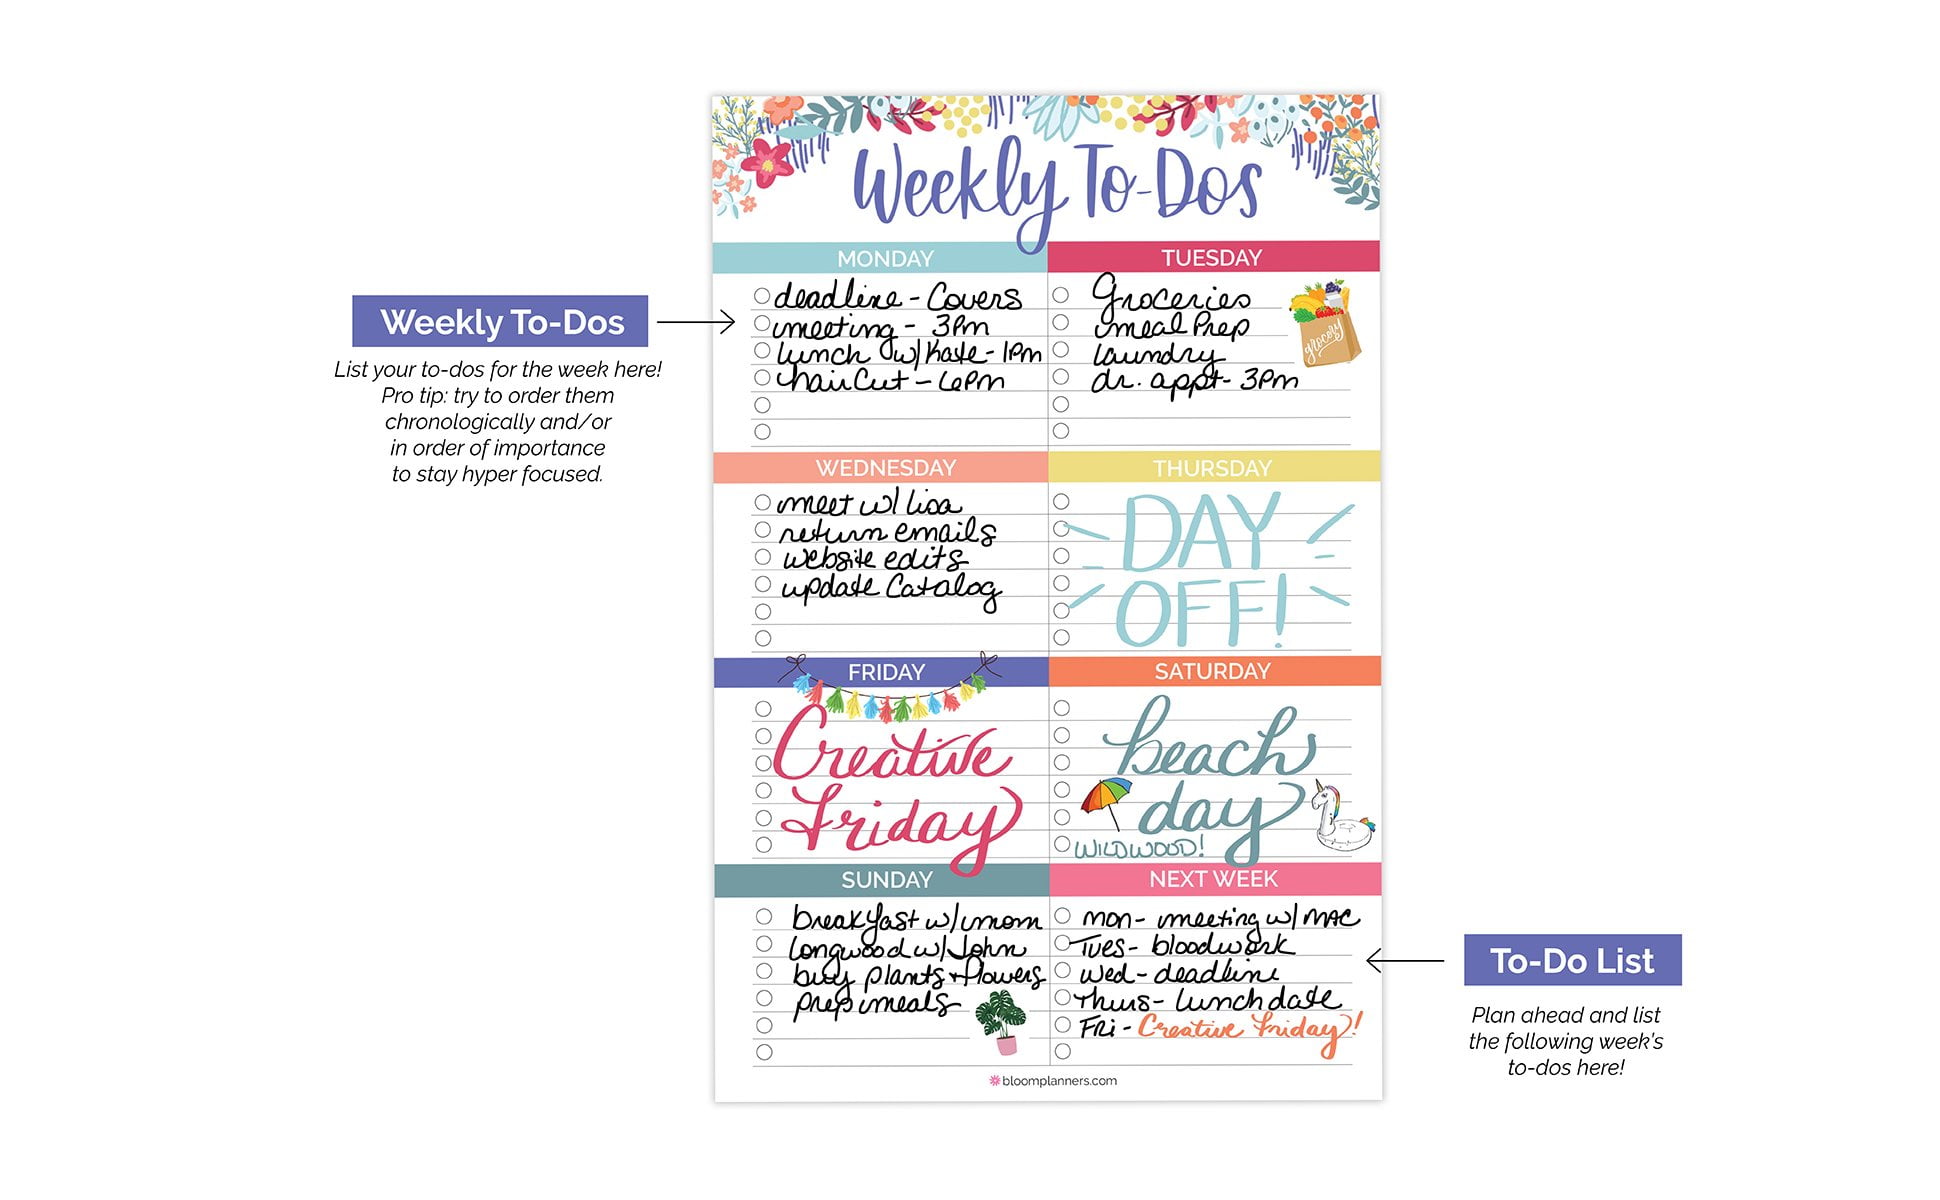 Weekly To-Dos
MONDAY
deadline - Covers
meeting - 3pm
lunch w/ Kate - 1pm
hair Cut - 6pm
TUESDAY
Groceries
meal Prep
laundry
dr. appt - 3pm
grocery
WEDNESDAY
meet w/ lisa
return emails
website edits
update Catalog
THURSDAY
DAY
OFF!
FRIDAY
Creative
Friday
SATURDAY
beach
day
WILDWOOD!
SUNDAY
breakfast w/ mom
longwood w/ John
buy plants + flowers
prep meals
NEXT WEEK
mon - meeting w/ MAC
Tues - bloodwork
Wed - deadline
Thurs - lunch date
FRI - Creative Friday!
bloomplanners.com
Weekly To-Dos
List your to-dos for the week here!
Pro tip: try to order them
chronologically and/or
in order of importance
to stay hyper focused.
To-Do List
Plan ahead and list
the following week's
to-dos here!